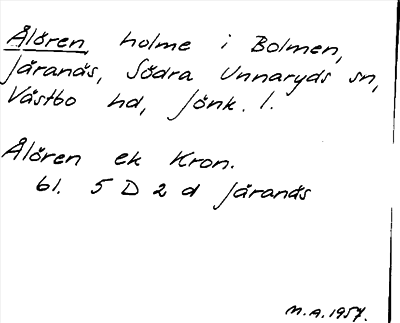 Ålören holme i Bolmen,
Järanäs, Södra Unnaryds sn,
Västbo hd, Jönk. l.
Ålören ek Kron.
bl. 5 D 2 d Järanäs
M.A. 1957.